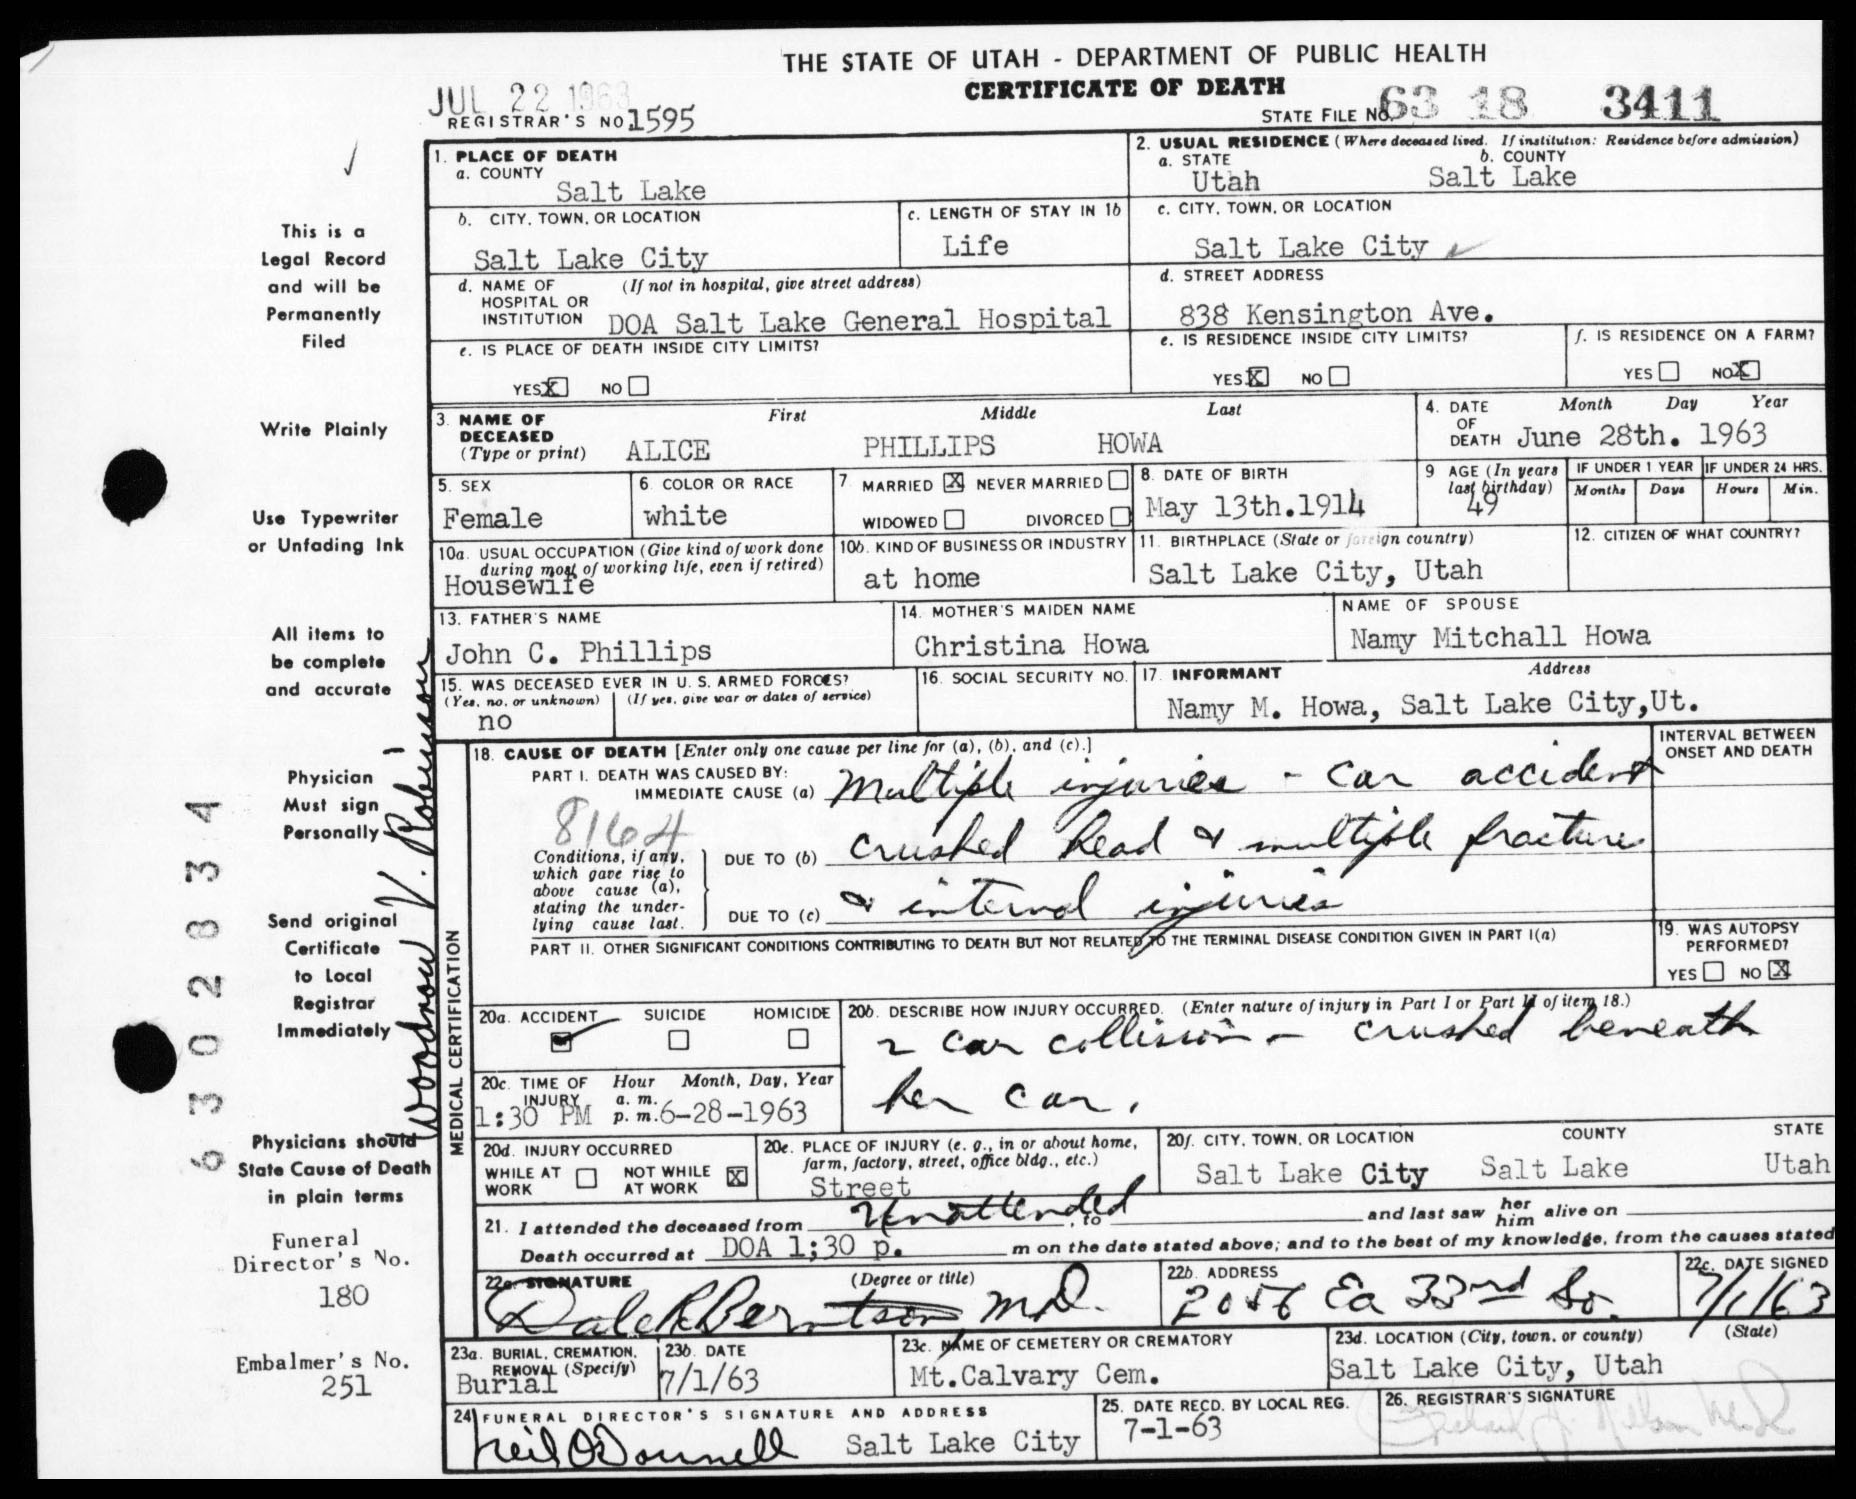 THE STATE OF UTAH - DEPARTMENT OF PUBLIC HEALTH
CERTIFICATE OF DEATH
JUL 22 1963
REGISTRAR'S NO. 1595
STATE FILE NO. 63 18 3411
This is a
Legal Record
and will be
Permanently
Filed
Write Plainly
Use Typewriter
or Unfading Ink
All items to
be complete
and accurate
Physician
Must sign
Personally
Send original
Certificate
to Local
Registrar
Immediately
Physicians should
State Cause of Death
in plain terms
Funeral
Director's No.
180
Embalmer's No.
251
630 2834
Woodrow V. Robinson
1. PLACE OF DEATH
a. COUNTY
Salt Lake
2. USUAL RESIDENCE (Where deceased lived. If institution: Residence before admission)
a. STATE b. COUNTY
Utah Salt Lake
b. CITY, TOWN, OR LOCATION
Salt Lake City
c. LENGTH OF STAY IN 1b
Life
c. CITY, TOWN, OR LOCATION
Salt Lake City
d. NAME OF HOSPITAL OR INSTITUTION (If not in hospital, give street address)
DOA Salt Lake General Hospital
d. STREET ADDRESS
838 Kensington Ave.
e. IS PLACE OF DEATH INSIDE CITY LIMITS?
YES X NO
e. IS RESIDENCE INSIDE CITY LIMITS?
YES X NO
f. IS RESIDENCE ON A FARM?
YES NO X
3. NAME OF DECEASED (Type or print)
First Middle Last
ALICE PHILLIPS HOWA
4. DATE OF DEATH Month Day Year
June 28th. 1963
5. SEX
Female
6. COLOR OR RACE
white
7. MARRIED X NEVER MARRIED
WIDOWED DIVORCED
8. DATE OF BIRTH
May 13th.1914
9 AGE (In years last birthday)
49
IF UNDER 1 YEAR
Months Days
IF UNDER 24 HRS.
Hours Min.
10a. USUAL OCCUPATION (Give kind of work done during most of working life, even if retired)
Housewife
10b. KIND OF BUSINESS OR INDUSTRY
at home
11. BIRTHPLACE (State or foreign country)
Salt Lake City, Utah
12. CITIZEN OF WHAT COUNTRY?
13. FATHER'S NAME
John C. Phillips
14. MOTHER'S MAIDEN NAME
Christina Howa
NAME OF SPOUSE
Namy Mitchall Howa
15. WAS DECEASED EVER IN U. S. ARMED FORCES?
(Yes, no, or unknown) (If yes, give war or dates of service)
no
16. SOCIAL SECURITY NO.
17. INFORMANT Address
Namy M. Howa, Salt Lake City,Ut.
MEDICAL CERTIFICATION
18. CAUSE OF DEATH [Enter only one cause per line for (a), (b), and (c).]
INTERVAL BETWEEN ONSET AND DEATH
PART I. DEATH WAS CAUSED BY:
IMMEDIATE CAUSE (a) Multiple injuries - car accident
8164
Conditions, if any, which gave rise to above cause (a), stating the underlying cause last.
DUE TO (b) crushed head & multiple fractures
DUE TO (c) & internal injuries
PART II. OTHER SIGNIFICANT CONDITIONS CONTRIBUTING TO DEATH BUT NOT RELATED TO THE TERMINAL DISEASE CONDITION GIVEN IN PART I(a)
19. WAS AUTOPSY PERFORMED?
YES NO X
20a. ACCIDENT SUICIDE HOMICIDE
20b. DESCRIBE HOW INJURY OCCURRED. (Enter nature of injury in Part I or Part II of item 18.)
2 car collision - crushed beneath
her car.
20c. TIME OF INJURY Hour Month, Day, Year
a. m.
p. m.
1:30 PM 6-28-1963
20d. INJURY OCCURRED
WHILE AT WORK NOT WHILE AT WORK X
20e. PLACE OF INJURY (e. g., in or about home, farm, factory, street, office bldg., etc.)
Street
20f. CITY, TOWN, OR LOCATION COUNTY STATE
Salt Lake City Salt Lake Utah
21. I attended the deceased from Unattended, to and last saw her him alive on
Death occurred at DOA 1:30 p. m on the date stated above; and to the best of my knowledge, from the causes stated
22a. SIGNATURE (Degree or title)
Dale R Berntson M.D.
22b. ADDRESS
2056 Ea 33rd So.
22c. DATE SIGNED
7/1/63
23a. BURIAL, CREMATION, REMOVAL (Specify)
Burial
23b. DATE
7/1/63
23c. NAME OF CEMETERY OR CREMATORY
Mt.Calvary Cem.
23d. LOCATION (City, town, or county) (State)
Salt Lake City, Utah
24 FUNERAL DIRECTOR'S SIGNATURE AND ADDRESS
Neil O'Donnell Salt Lake City
25. DATE RECD. BY LOCAL REG.
7-1-63
26. REGISTRAR'S SIGNATURE